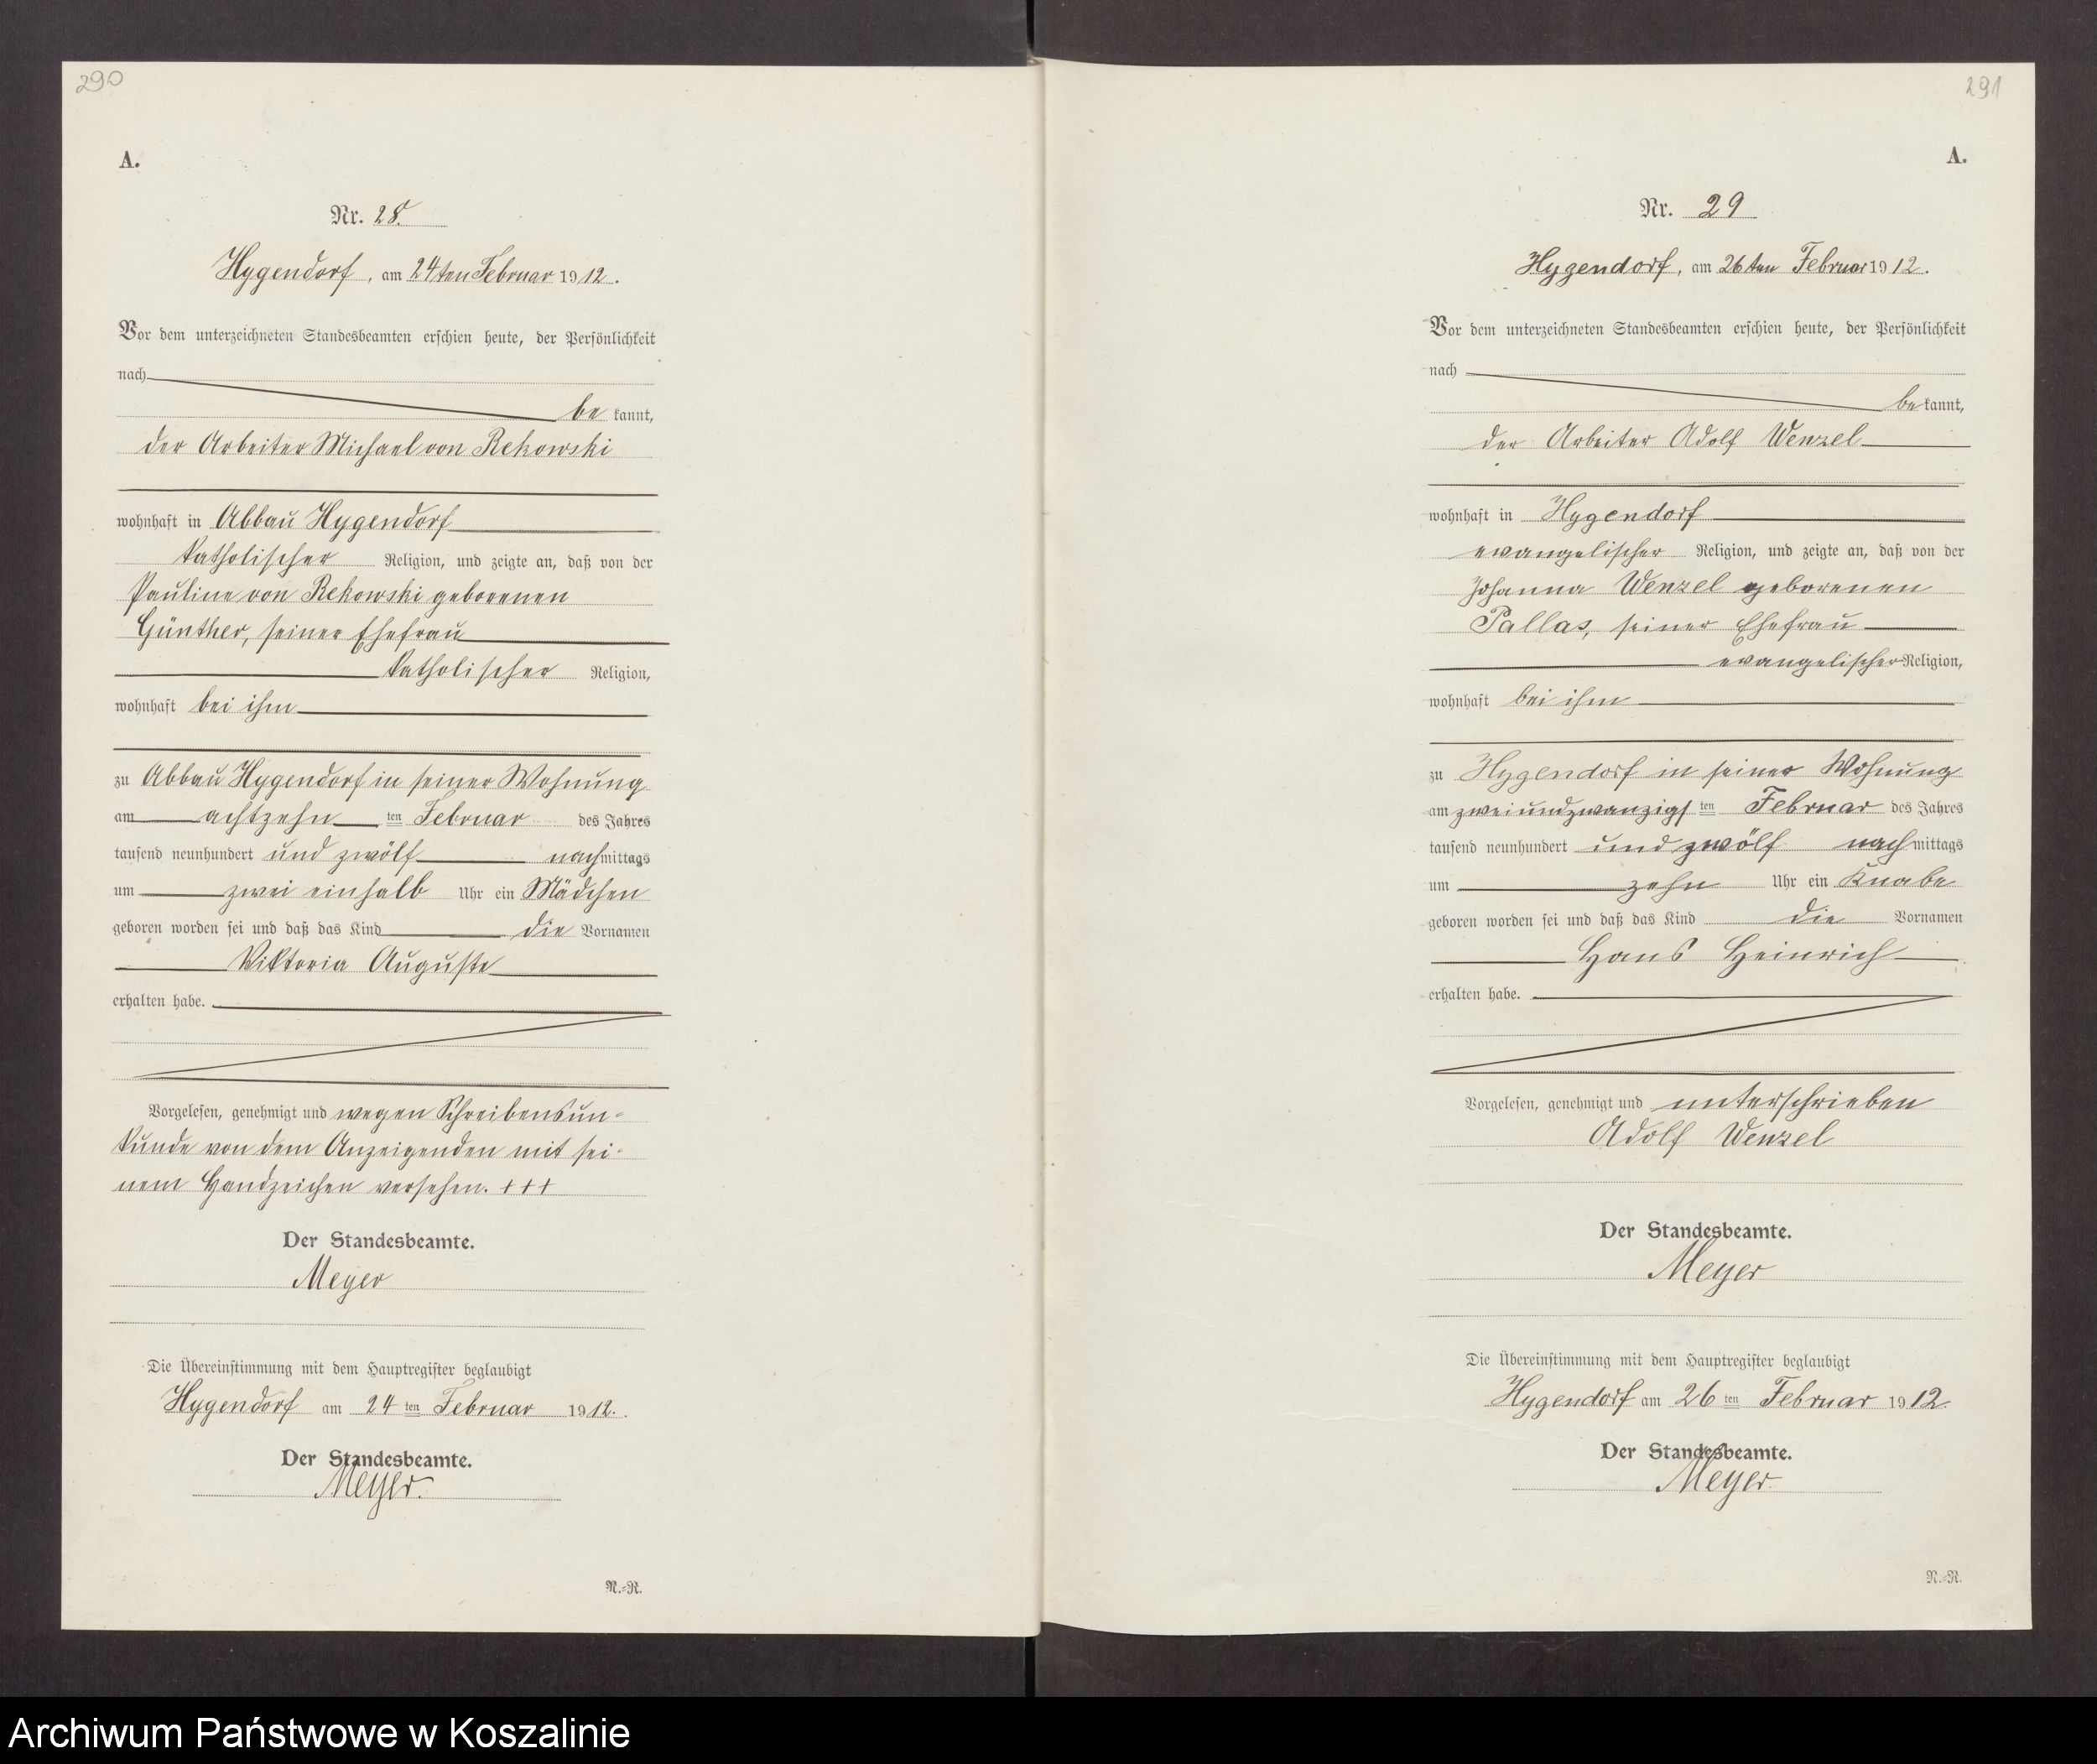 290
A.
Nr. 28.
Hygendorf, am 24ten Februar 1912.
Vor dem unterzeichneten Standesbeamten erschien heute, der Persönlichkeit
nach
be kannt,
der Arbeiter Michael von Rekowski
wohnhaft in Abbau Hygendorf
katholischer Religion, und zeigte an, daß von der
Pauline von Rekowski geborenen
Günther, seiner Ehefrau
katholischer Religion,
wohnhaft bei ihm
zu Abbau Hygendorf in seiner Wohnung
am achtzehn ten Februar des Jahres
tausend neunhundert und zwölf nachmittags
um zwei einhalb Uhr ein Mädchen
geboren worden sei und daß das Kind die Vornamen
Viktoria Auguste
erhalten habe.
Vorgelesen, genehmigt und wegen Schreibensun-
kunde von dem Anzeigenden mit sei-
nem Handzeichen versehen. +++
Der Standesbeamte.
Meyer
Die Übereinstimmung mit dem Hauptregister beglaubigt
Hygendorf am 24 ten Februar 1912.
Der Standesbeamte.
Meyer.
N.=R.
291
A.
Nr. 29
Hygendorf, am 26ten Februar 1912.
Vor dem unterzeichneten Standesbeamten erschien heute, der Persönlichkeit
nach
be kannt,
der Arbeiter Adolf Wenzel
wohnhaft in Hygendorf
evangelischer Religion, und zeigte an, daß von der
Johanna Wenzel geborenen
Pallas, seiner Ehefrau
evangelischer Religion,
wohnhaft bei ihm
zu Hygendorf in seiner Wohnung
am zweiundzwanzigs ten Februar des Jahres
tausend neunhundert und zwölf nachmittags
um zehn Uhr ein Knabe
geboren worden sei und daß das Kind die Vornamen
Hans Heinrich
erhalten habe.
Vorgelesen, genehmigt und unterschrieben
Adolf Wenzel
Der Standesbeamte.
Meyer
Die Übereinstimmung mit dem Hauptregister beglaubigt
Hygendorf am 26 ten Februar 1912.
Der Standesbeamte.
Meyer.
N.=R.
Archiwum Państwowe w Koszalinie